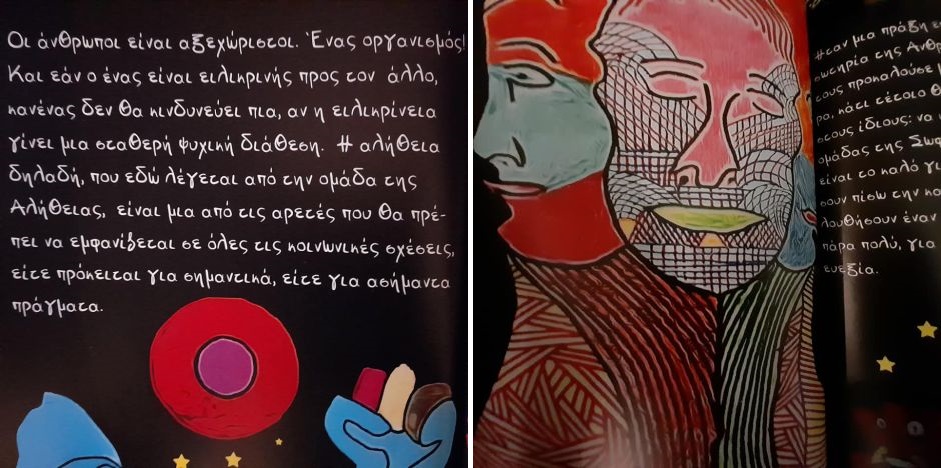 Οι άνθρωποι είναι αξεχώριστοι. Ένας οργανισμός!
Και εάν ο ένας είναι ειλικρινής προς τον άλλο,
κανένας δεν θα κινδυνεύει πια, αν η ειλικρίνεια
γίνει μια σταθερή ψυχική διάθεση. Η αλήθεια
δηλαδή, που εδώ λέγεται από την ομάδα της
Αλήθειας, είναι μια από τις αρετές που θα πρέ-
πει να εμφανίζεται σε όλες τις κοινωνικές σχέσεις,
είτε πρόκειται για σημαντικά, είτε για ασήμαντα
πράγματα.
Ήταν μια πράξη
σωτηρία της
τους προκαλούσε
κάτι τέτοιο
στους ίδιους: να
ομάδας της
είναι το καλό
πίσω την
έναν
πάρα πολύ, για
ευεξία.